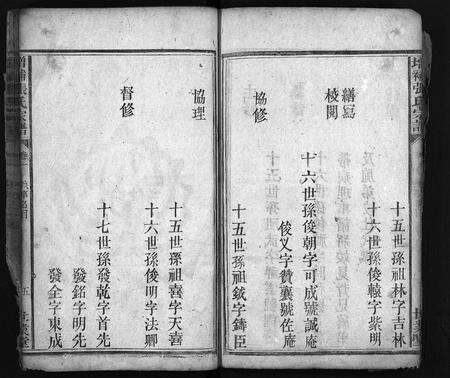 十五世孫祖林字吉林
十六世孫俊轅字紫明
繕寫
校閱
十六世孫俊朝字可成號誠庵
俊乂字贊襄號佐庵
協修
十五世孫祖鉞字鑄臣
協理
十五世孫祖喜字天喜
十六世孫俊明字法卿
督修
十七世孫發乾字首先
發銘字明先
發全字東成
增補張氏宗譜